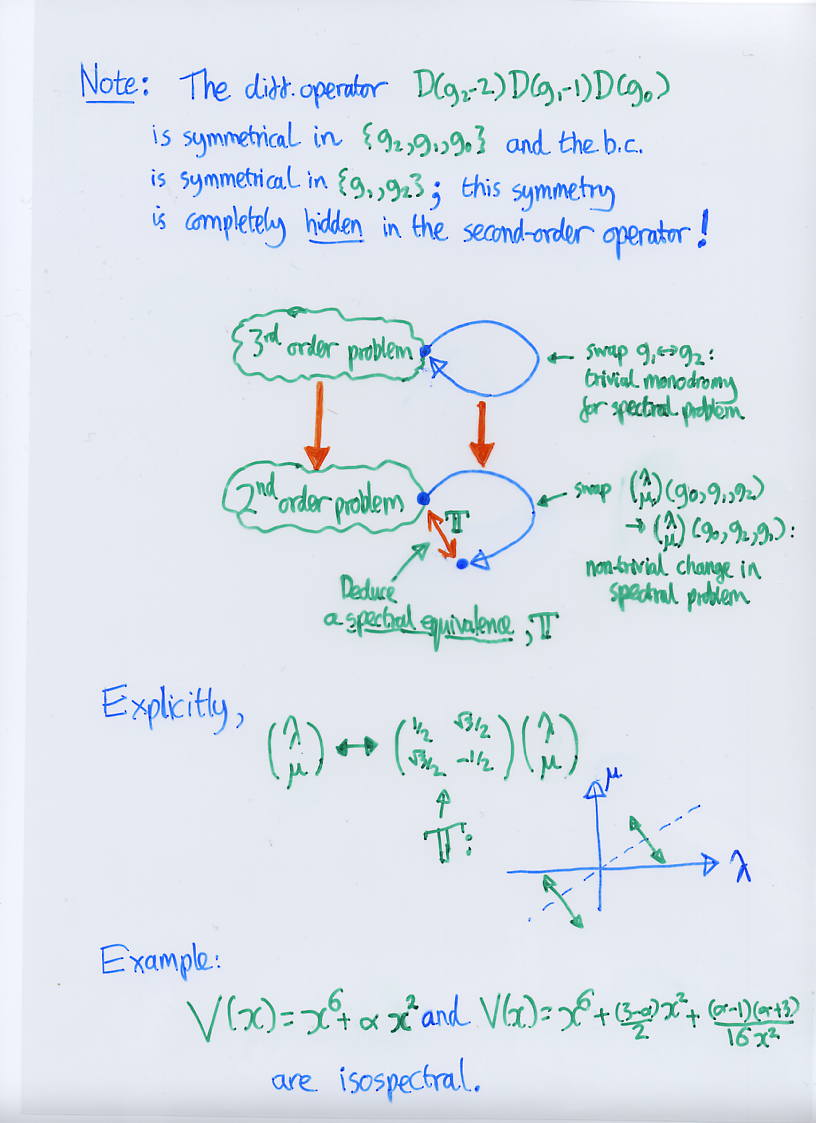 Note: The diff. operator D(g₂-2)D(g₁-1)D(g₀)
is symmetrical in {g₂,g₁,g₀} and the b.c.
is symmetrical in {g₁,g₂}; this symmetry
is completely hidden in the second-order operator!
3rd order problem
← swap g₁↔g₂:
trivial monodromy
for spectral problem
2nd order problem
𝕋
← swap (λ μ)(g₀,g₁,g₂)
→ (λ μ)(g₀,g₂,g₁):
non-trivial change in
spectral problem
Deduce
a spectral equivalence, 𝕋
Explicitly,
(λ μ) ↔ (1/2 √3/2 √3/2 -1/2) (λ μ)
𝕋:
μ
λ
Example:
V(x)=x⁶+αx² and V(x)=x⁶+(3-α)/2 x²+(α-1)(α+3)/16x²
are isospectral.